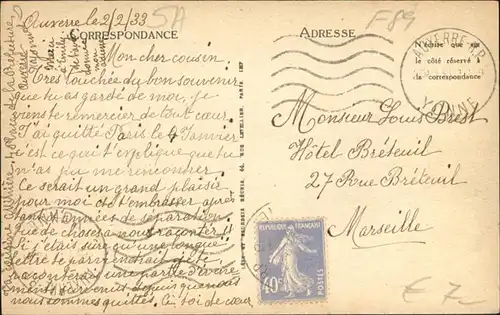 Auxerre le 2/2/33
5A
F89
CORRESPONDANCE
ADRESSE
Mon cher cousin
Très touchée du bon souvenir
que tu as gardé de moi, je
viens te remercier de tout cœur.
J'ai quitté Paris le 4 Janvier
c'est ce qui t'explique que tu
n'as pu me rencontrer.
Ce serait un grand plaisir
pour moi de t'embrasser après
tant d'années de séparation.
Que de choses à nous raconter!!
Si j'étais sûre qu'une longue
lettre te parviendrait je te
raconterais une partie d'évène
ments survenus depuis que nous
nous sommes quittés. Ci
de cœur
Place de la Préfecture
Auxerre
N'écrire que sur
le côté réservé à
la correspondance
AUXERRE
YONNE
Monsieur Louis Brest
Hôtel Bréteuil
27 Rue Bréteuil
Marseille
REPUBLIQUE FRANÇAISE
40c
POSTES
€ 7-